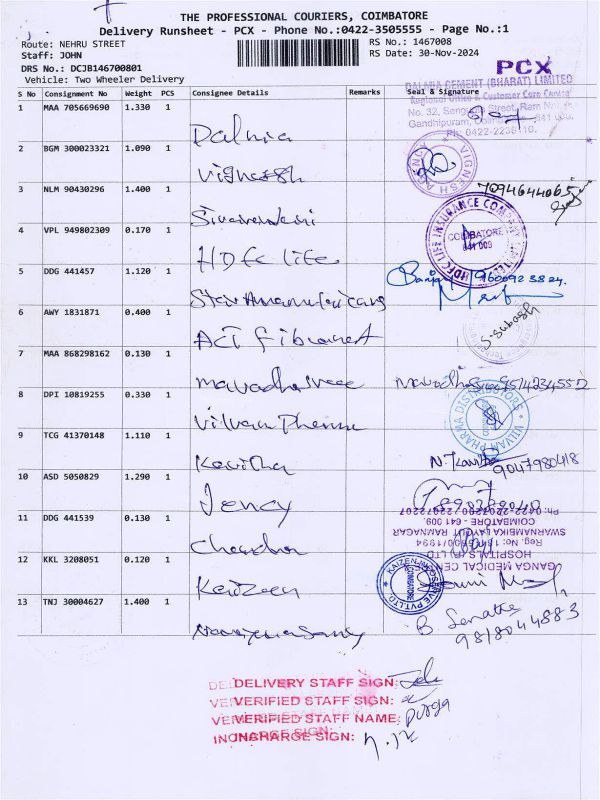 THE PROFESSIONAL COURIERS, COIMBATORE
Delivery Runsheet - PCX - Phone No.:0422-3505555 - Page No.:1
Route: NEHRU STREET
RS No.: 1467008
Staff: JOHN
RS Date: 30-Nov-2024
DRS No.: DCJB146700801
PCX
Vehicle: Two Wheeler Delivery
DALMIA CEMENT (BHARAT) LIMITED
Regional Office & Customer Care Centre
S No Consignment No Weight PCS Consignee Details Remarks Seal & Signature
No. 32, Street, Ram Nagar
Gandhipuram,
Ph: 0422-2238110.
1 MAA 705669690 1.330 1 Dalmia
2 BGM 300023321 1.090 1 Vignessh
VIGNESH AGENCY
3 NLM 90430296 1.400 1
7094644065
4 VPL 949802309 0.170 1 HDFC Life
HDFC LIFE INSURANCE COMPANY
COIMBATORE
641 009
5 DDG 441457 1.120 1
9600923824.
6 AWY 1831871 0.400 1 ACT Fibernet
S. Subash
7 MAA 868298162 0.130 1
9514234552
8 DPI 10819255 0.330 1 Vilvam Pharma
VILVAM PHARMA DISTRIBUTORS
9 TCG 41370148 1.110 1 Kavitha
N. Kavitha
9047980418
10 ASD 5050829 1.290 1 Jency
11 DDG 441539 0.130 1 Chandra
GANGA MEDICAL CENTRE
HOSPITALS LTD
SWARNAMBIKA LAYOUT, RAMNAGAR
COIMBATORE - 641 009.
12 KKL 3208051 0.120 1 Kaizen
COIMBATORE
13 TNJ 30004627 1.400 1 Narayanasamy
9818044883
DELIVERY STAFF SIGN:
VERIFIED STAFF SIGN:
VERIFIED STAFF NAME: Durga
INCHARGE SIGN: